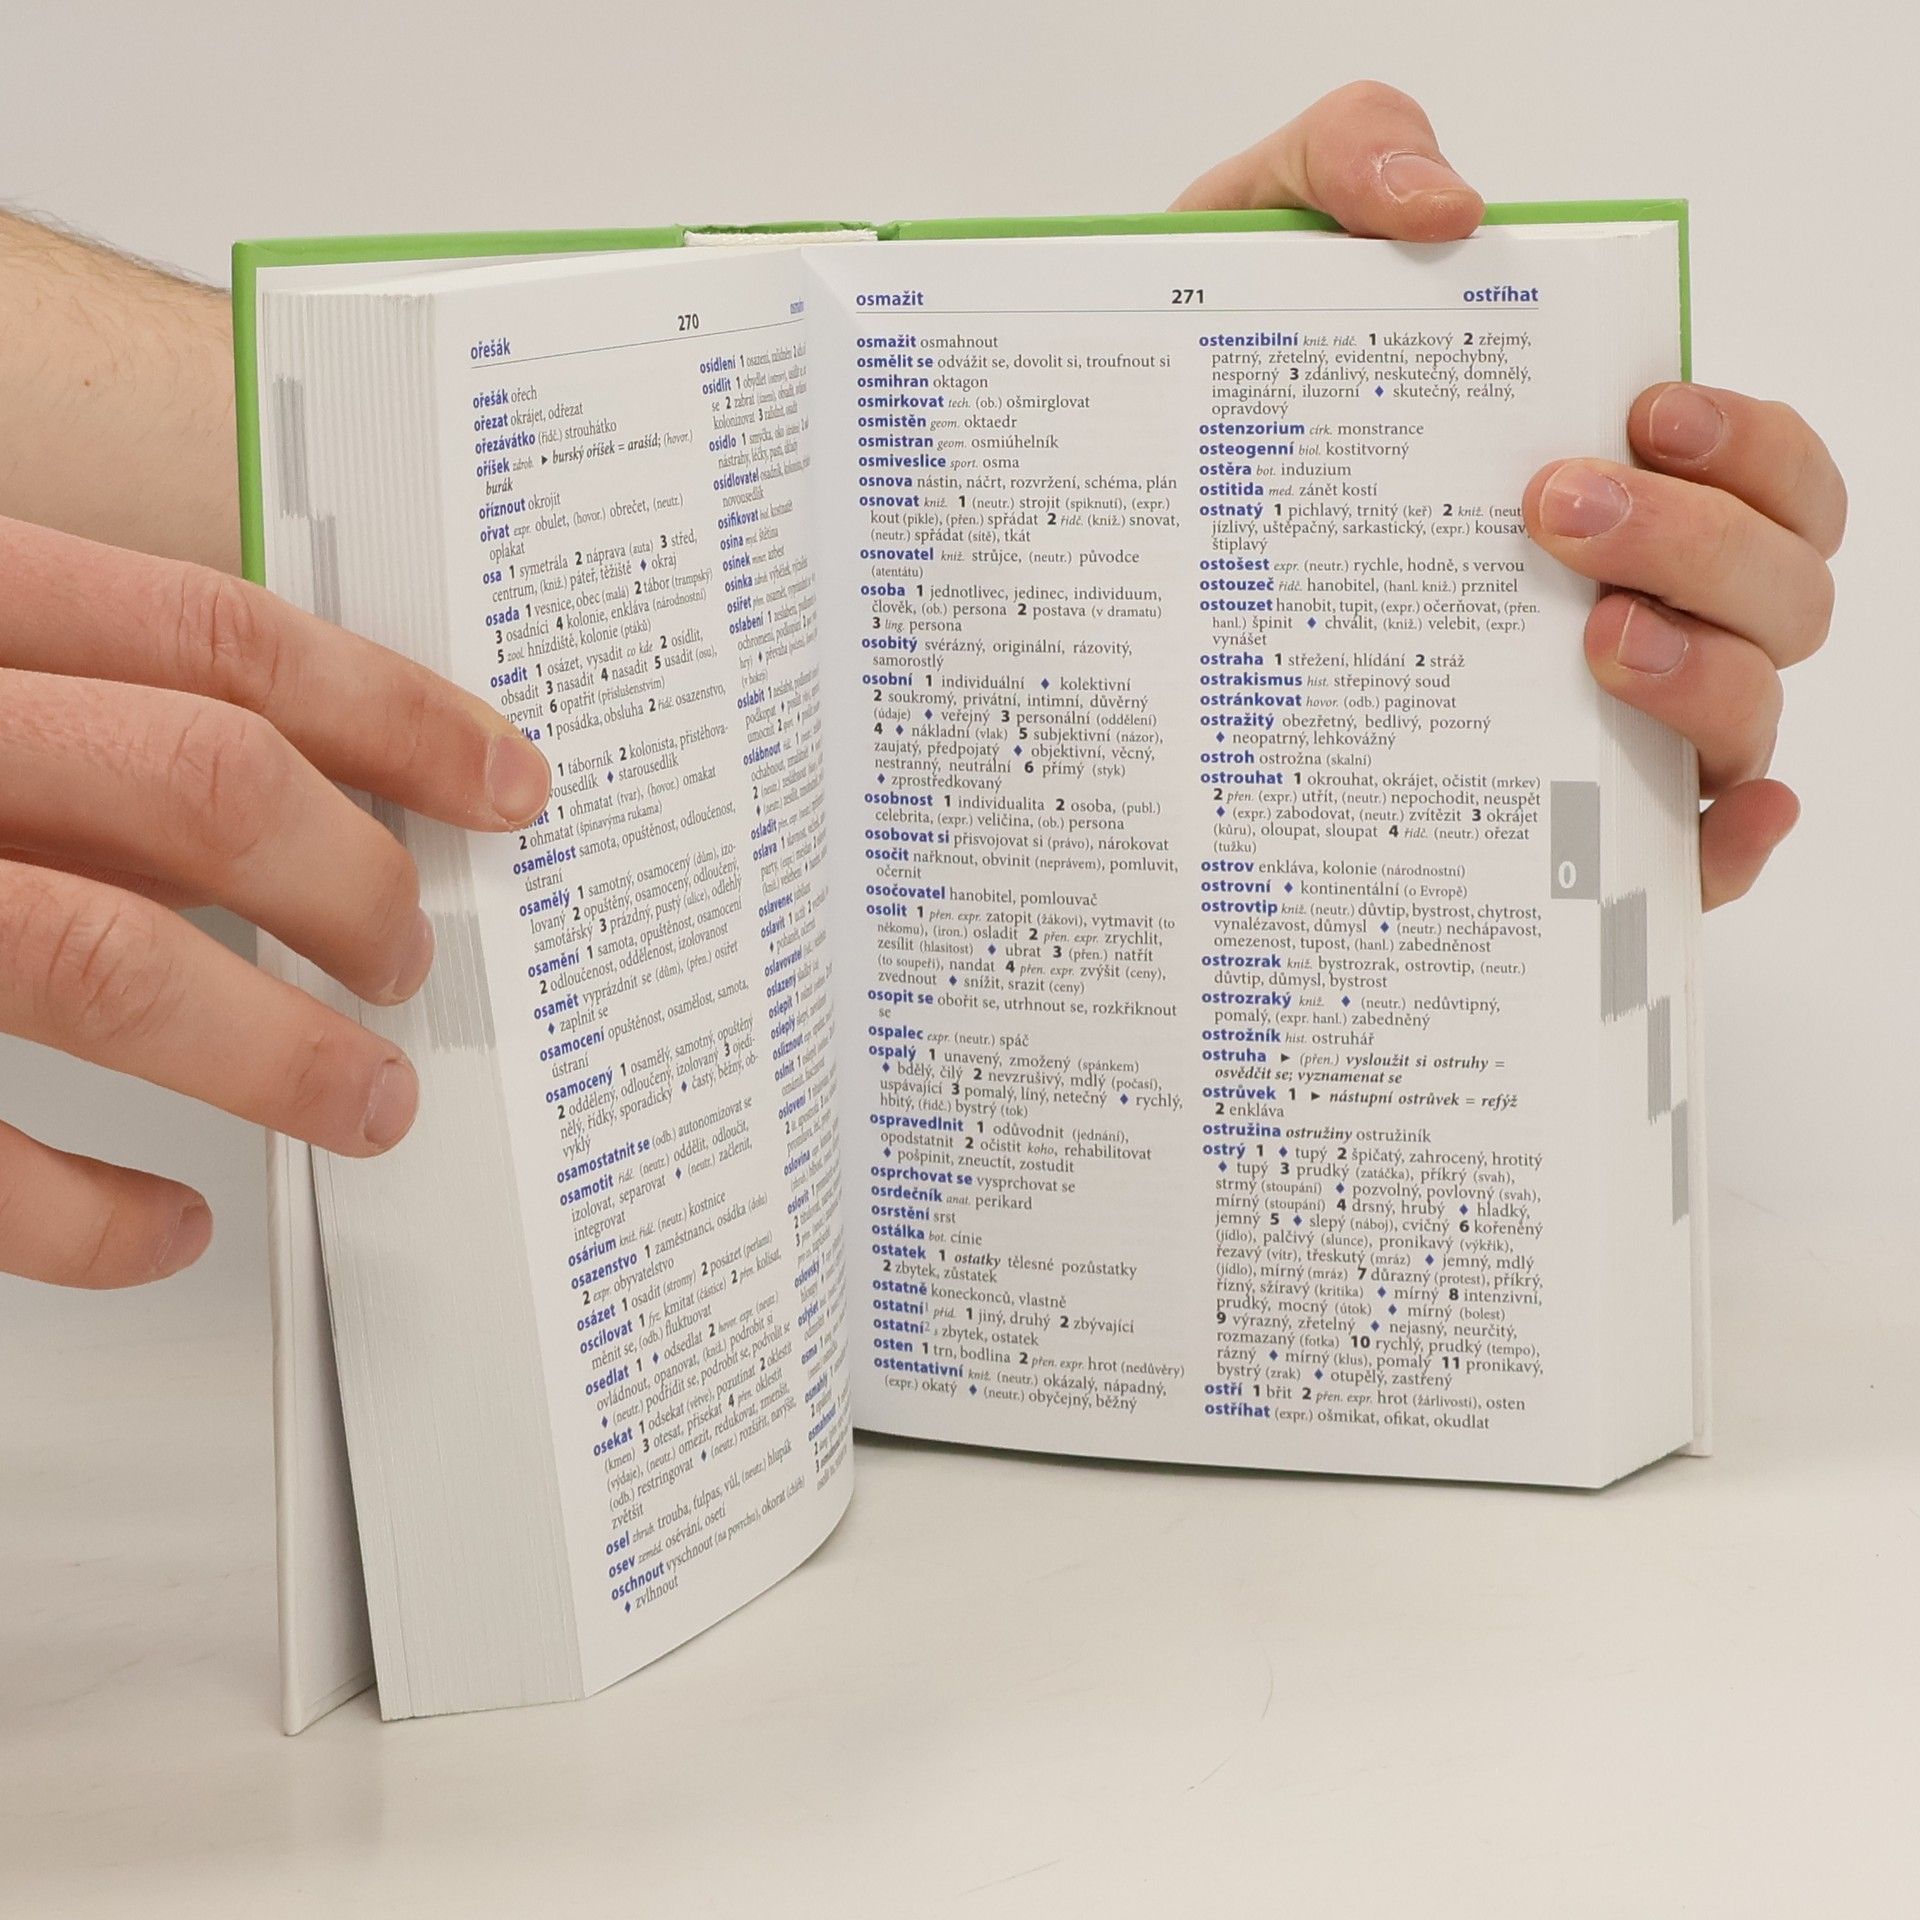 ořešák
270
ořešák ořech
ořezat okrájet, odřezat
ořezávátko (řidč.) strouhátko
oříšek zdrob. ► burský oříšek = arašíd; (hovor.)
burák
oříznout okrojit
ořvat expr. obulet, (hovor.) obrečet, (neutr.)
oplakat
osa 1 symetrála 2 náprava (auta) 3 střed,
centrum, (kniž.) páteř, těžiště ♦ okraj
osada 1 vesnice, obec (malá) 2 tábor (trampský)
3 osadníci 4 kolonie, enkláva (národnostní)
5 zool. hnízdiště, kolonie (ptáků)
osadit 1 osázet, vysadit co kde 2 osídlit,
obsadit 3 nasadit 4 nasadit 5 usadit (osu),
upevnit 6 opatřit (příslušenstvím)
1 posádka, obsluha 2 řidč. osazenstvo,
1 táborník 2 kolonista, přistěhova-
♦ starousedlík
1 ohmatat (tvar), (hovor.) omakat
2 ohmatat (špinavýma rukama)
osamělost samota, opuštěnost, odloučenost,
ústraní
osamělý 1 samotný, osamocený (dům), izo-
lovaný 2 opuštěný, osamocený, odloučený,
samotářský 3 prázdný, pustý (ulice), odlehlý
osamění 1 samota, opuštěnost, osamocení
2 odloučenost, oddělenost, izolovanost
osamět vyprázdnit se (dům), (přen.) osiřet
♦ zaplnit se
osamocení opuštěnost, osamělost, samota,
ústraní
osamocený 1 osamělý, samotný, opuštěný
2 oddělený, odloučený, izolovaný 3 ojedi-
nělý, řídký, sporadický ♦ častý, běžný, ob-
vyklý
osamostatnit se (odb.) autonomizovat se
osamotit řidč. (neutr.) oddělit, odloučit,
izolovat, separovat ♦ (neutr.) začlenit,
integrovat
osárium kniž. řidč. (neutr.) kostnice
osazenstvo 1 zaměstnanci, osádka (dolu)
2 expr. obyvatelstvo
osázet 1 osadit (stromy) 2 posázet (perlami)
oscilovat 1 fyz. kmitat (částice) 2 přen. kolísat,
měnit se, (odb.) fluktuovat
osedlat 1 ♦ odsedlat 2 hovor. expr. (neutr.)
ovládnout, opanovat, (kniž.) podrobit si
♦ (neutr.) podřídit se, podrobit se, podvolit se
osekat 1 odsekat (větve), pozutínat 2 oklestit
(kmen) 3 otesat, přisekat 4 přen. oklestit
(výdaje), (neutr.) omezit, redukovat, zmenšit,
(odb.) restringovat ♦ (neutr.) rozšířit, navýšit,
zvětšit
osel zhrub. trouba, ťulpas, vůl, (neutr.) hlupák
osev zeměd. osévání, osetí
oschnout vyschnout (na povrchu), okorat (chléb)
♦ zvlhnout
osídlení 1 osazení,
osídlit 1 obydlet
se 2 zabrat
kolonizovat 3
osidlo 1 smyčka, oko
nástrahy, léčky, pasti,
osídlovatel osadník,
novousedlík
osifikovat
osina mysl. štětina
osinek miner. azbest
osinka
osiřet
oslabení 1
oslabit 1
oslábnout
osladit
oslava 1
oslavenec
oslavit 1
oslavovatel
oslazený
oslepit 1
oslepnout
oslnit 1
oslovení 1
oslovina
oslovit 1
oslovský 1
osma 1
osmahlý 1
osmahnout
osmažit
271
ostříhat
osmažit osmahnout
osmělit se odvážit se, dovolit si, troufnout si
osmihran oktagon
osmirkovat tech. (ob.) ošmirglovat
osmistěn geom. oktaedr
osmistran geom. osmiúhelník
osmiveslice sport. osma
osnova nástin, náčrt, rozvržení, schéma, plán
osnovat kniž. 1 (neutr.) strojit (spiknutí), (expr.)
kout (pikle), (přen.) spřádat 2 řidč. (kniž.) snovat,
(neutr.) spřádat (sítě), tkát
osnovatel kniž. strůjce, (neutr.) původce
(atentátu)
osoba 1 jednotlivec, jedinec, individuum,
člověk, (ob.) persona 2 postava (v dramatu)
3 ling. persona
osobitý svérázný, originální, rázovitý,
samorostlý
osobní 1 individuální ♦ kolektivní
2 soukromý, privátní, intimní, důvěrný
(údaje) ♦ veřejný 3 personální (oddělení)
4 ♦ nákladní (vlak) 5 subjektivní (názor),
zaujatý, předpojatý ♦ objektivní, věcný,
nestranný, neutrální 6 přímý (styk)
♦ zprostředkovaný
osobnost 1 individualita 2 osoba, (publ.)
celebrita, (expr.) veličina, (ob.) persona
osobovat si přisvojovat si (právo), nárokovat
osočit nařknout, obvinit (neprávem), pomluvit,
očernit
osočovatel hanobitel, pomlouvač
osolit 1 přen. expr. zatopit (žákovi), vytmavit (to
někomu), (iron.) osladit 2 přen. expr. zrychlit,
zesílit (hlasitost) ♦ ubrat 3 (přen.) natřít
(to soupeři), nandat 4 přen. expr. zvýšit (ceny),
zvednout ♦ snížit, srazit (ceny)
osopit se obořit se, utrhnout se, rozkřiknout
se
ospalec expr. (neutr.) spáč
ospalý 1 unavený, zmožený (spánkem)
♦ bdělý, čilý 2 nevzrušivý, mdlý (počasí),
uspávající 3 pomalý, líný, netečný ♦ rychlý,
hbitý, (řidč.) bystrý (tok)
ospravedlnit 1 odůvodnit (jednání),
opodstatnit 2 očistit koho, rehabilitovat
♦ pošpinit, zneuctít, zostudit
osprchovat se vysprchovat se
osrdečník anat. perikard
osrstění srst
ostálka bot. cínie
ostatek 1 ostatky tělesné pozůstatky
2 zbytek, zůstatek
ostatně koneckonců, vlastně
ostatní¹ příd. 1 jiný, druhý 2 zbývající
ostatní² s zbytek, ostatek
osten 1 trn, bodlina 2 přen. expr. hrot (nedůvěry)
ostentativní kniž. (neutr.) okázalý, nápadný,
(expr.) okatý ♦ (neutr.) obyčejný, běžný
ostenzibilní kniž. řidč. 1 ukázkový 2 zřejmý,
patrný, zřetelný, evidentní, nepochybný,
nesporný 3 zdánlivý, neskutečný, domnělý,
imaginární, iluzorní ♦ skutečný, reálný,
opravdový
ostenzorium círk. monstrance
osteogenní biol. kostitvorný
ostěra bot. induzium
ostitida med. zánět kostí
ostnatý 1 pichlavý, trnitý (keř) 2 kniž. (neut
jízlivý, uštěpačný, sarkastický, (expr.) kousav
štiplavý
ostošest expr. (neutr.) rychle, hodně, s vervou
ostouzeč řidč. hanobitel, (hanl. kniž.) prznitel
ostouzet hanobit, tupit, (expr.) očerňovat, (přen.
hanl.) špinit ♦ chválit, (kniž.) velebit, (expr.)
vynášet
ostraha 1 střežení, hlídání 2 stráž
ostrakismus hist. střepinový soud
ostránkovat hovor. (odb.) paginovat
ostražitý obezřetný, bedlivý, pozorný
♦ neopatrný, lehkovážný
ostroh ostrožna (skalní)
ostrouhat 1 okrouhat, okrájet, očistit (mrkev)
2 přen. (expr.) utřít, (neutr.) nepochodit, neuspět
♦ (expr.) zabodovat, (neutr.) zvítězit 3 okrájet
(kůru), oloupat, sloupat 4 řidč. (neutr.) ořezat
(tužku)
ostrov enkláva, kolonie (národnostní)
ostrovní ♦ kontinentální (o Evropě)
ostrovtip kniž. (neutr.) důvtip, bystrost, chytrost,
vynalézavost, důmysl ♦ (neutr.) nechápavost,
omezenost, tupost, (hanl.) zabedněnost
ostrozrak kniž. bystrozrak, ostrovtip, (neutr.)
důvtip, důmysl, bystrost
ostrozraký kniž. ♦ (neutr.) nedůvtipný,
pomalý, (expr. hanl.) zabedněný
ostrožník hist. ostruhář
ostruha ► (přen.) vysloužit si ostruhy =
osvědčit se; vyznamenat se
ostrůvek 1 ► nástupní ostrůvek = refýž
2 enkláva
ostružina ostružiny ostružiník
ostrý 1 ♦ tupý 2 špičatý, zahrocený, hrotitý
♦ tupý 3 prudký (zatáčka), příkrý (svah),
strmý (stoupání) ♦ pozvolný, povlovný (svah),
mírný (stoupání) 4 drsný, hrubý ♦ hladký,
jemný 5 ♦ slepý (náboj), cvičný 6 kořeněný
(jídlo), palčivý (slunce), pronikavý (výkřik),
řezavý (vítr), třeskutý (mráz) ♦ jemný, mdlý
(jídlo), mírný (mráz) 7 důrazný (protest), příkrý,
řízný, sžíravý (kritika) ♦ mírný 8 intenzivní,
prudký, mocný (útok) ♦ mírný (bolest)
9 výrazný, zřetelný ♦ nejasný, neurčitý,
rozmazaný (fotka) 10 rychlý, prudký (tempo),
rázný ♦ mírný (klus), pomalý 11 pronikavý,
bystrý (zrak) ♦ otupělý, zastřený
ostří 1 břit 2 přen. expr. hrot (žárlivosti), osten
ostříhat (expr.) ošmikat, ofikat, okudlat
O